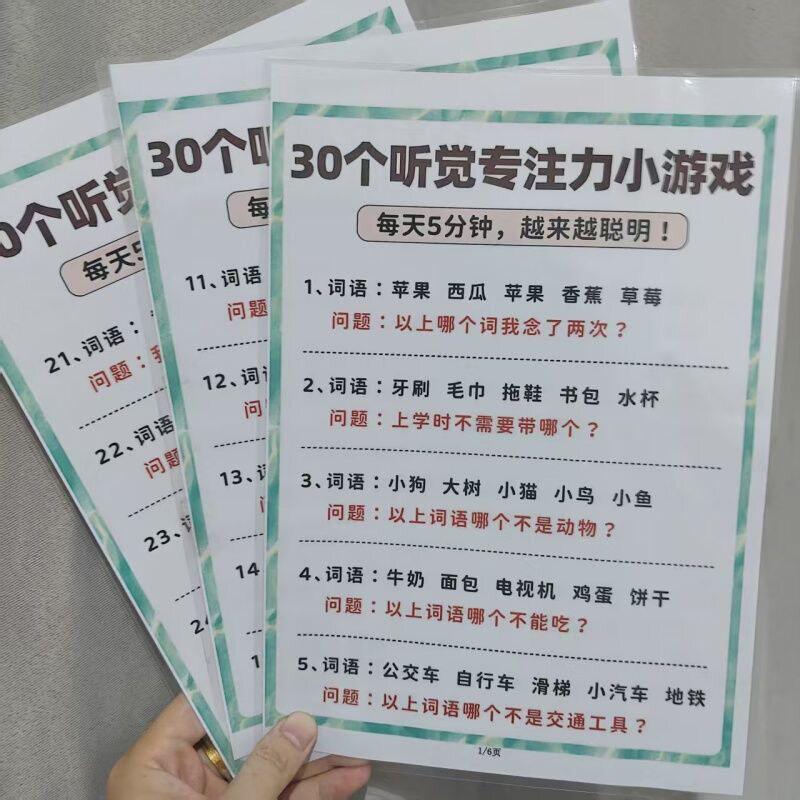 30个听觉专注力小游戏
每天5分钟，越来越聪明！
1、词语：苹果 西瓜 苹果 香蕉 草莓
问题：以上哪个词我念了两次？
2、词语：牙刷 毛巾 拖鞋 书包 水杯
问题：上学时不需要带哪个？
3、词语：小狗 大树 小猫 小鸟 小鱼
问题：以上词语哪个不是动物？
4、词语：牛奶 面包 电视机 鸡蛋 饼干
问题：以上词语哪个不能吃？
5、词语：公交车 自行车 滑梯 小汽车 地铁
问题：以上词语哪个不是交通工具？
1/6页
30个听
每
11、词语
问题
12、词
问
13、
14
1
0个听觉
每天5
21、词语：
问题：
22、词语
问题
23、词
2